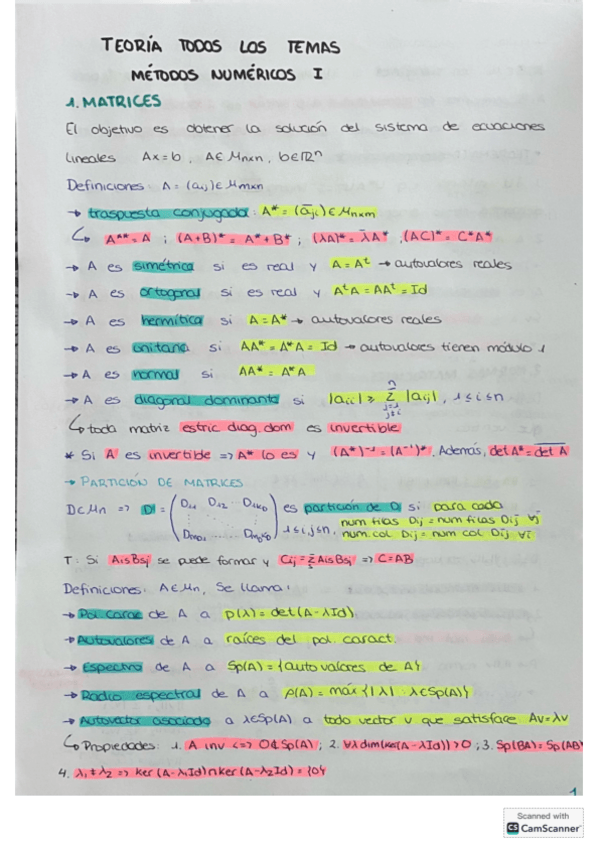 TEORÍA TODOS LOS TEMAS
MÉTODOS NUMÉRICOS I
1. MATRICES
El objetivo es obtener la solución del sistema de ecuaciones
lineales Ax=b, A∈Mnxn, b∈ℝⁿ
Definiciones: A = (aij)∈Mmxn
→ traspuesta conjugada: A* = (āji)∈Mnxm
↳ A** = A ; (A+B)* = A* + B* ; (λA)* = λ̄A* , (AC)* = C*A*
→ A es simétrica si es real y A = Aᵗ → autovalores reales
→ A es ortogonal si es real y AᵗA = AAᵗ = Id
→ A es hermítica si A = A* → autovalores reales
→ A es unitaria si AA* = A*A = Id → autovalores tienen módulo 1
→ A es normal si AA* = A*A
→ A es diagonal dominante si |aii| ≥ Σ (j=1, j≠i; n) |aij|, 1≤i≤n
↳ toda matriz estric. diag. dom es invertible
* Si A es invertible => A* lo es y (A*)⁻¹ = (A⁻¹)*. Además, det A* = \overline{det A}
→ PARTICIÓN DE MATRICES
D∈Mn => D = (D11 D12 ... D1N0 ... DN01 ... DN0N0) 1≤i,j≤n, es partición de D si para cada
num filas Dij = num filas Dij ∀j
num col. Dij = num col. Dij ∀i
T: Si AisBsj se puede formar y Cij = Σs AisBsj => C=AB
Definiciones: A∈Mn, Se llama:
→ Pol. carac de A a p(λ) = det(A-λId)
→ Autovalores de A a raíces del pol. caract.
→ Espectro de A a Sp(A) = {autovalores de A}
→ Radio espectral de A a ρ(A) = máx{|λ| : λ∈Sp(A)}
→ Autovector asociado a λ∈Sp(A) a todo vector v que satisface Av=λv
↳ Propiedades: 1. A inv <=> 0∉Sp(A) ; 2. ∀λ dim(ker(A-λId))>0 ; 3. Sp(BA) = Sp(AB)
4. λ1≠λ2 => ker(A-λ1Id)∩ker(A-λ2Id) = {0}
1
Scanned with
CS CamScanner